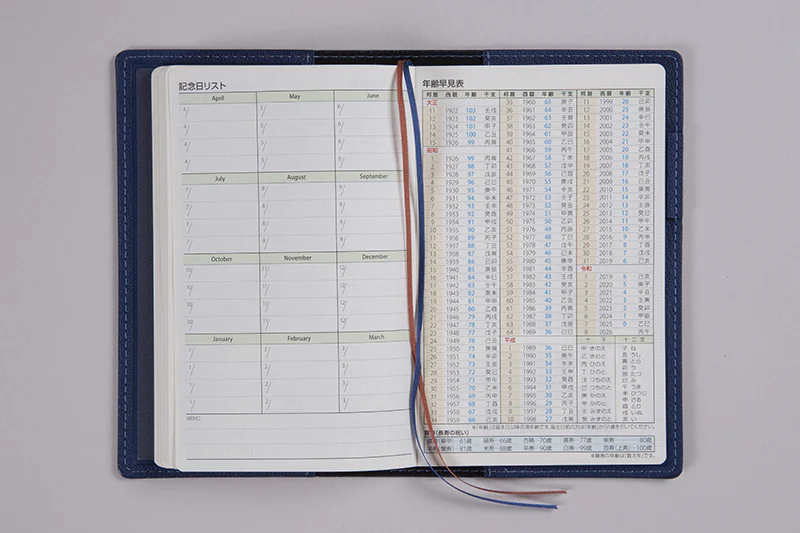 記念日リスト
April May June
4/ 5/ 6/
4/ 5/ 6/
4/ 5/ 6/
4/ 5/ 6/
July August September
7/ 8/ 9/
7/ 8/ 9/
7/ 8/ 9/
7/ 8/ 9/
October November December
10/ 11/ 12/
10/ 11/ 12/
10/ 11/ 12/
10/ 11/ 12/
January February March
1/ 2/ 3/
1/ 2/ 3/
1/ 2/ 3/
1/ 2/ 3/
MEMO
年齢早見表
邦暦 西暦 年齢 干支 邦暦 西暦 年齢 干支 邦暦 西暦 年齢 干支
大正 35 1960 65 庚子 11 1999 26 己卯
11 1922 103 壬戌 36 1961 64 辛丑 12 2000 25 庚辰
12 1923 102 癸亥 37 1962 63 壬寅 13 2001 24 辛巳
13 1924 101 甲子 38 1963 62 癸卯 14 2002 23 壬午
14 1925 100 乙丑 39 1964 61 甲辰 15 2003 22 癸未
15 1926 99 丙寅 40 1965 60 乙巳 16 2004 21 甲申
昭和 41 1966 59 丙午 17 2005 20 乙酉
1 1926 99 丙寅 42 1967 58 丁未 18 2006 19 丙戌
2 1927 98 丁卯 43 1968 57 戊申 19 2007 18 丁亥
3 1928 97 戊辰 44 1969 56 己酉 20 2008 17 戊子
4 1929 96 己巳 45 1970 55 庚戌 21 2009 16 己丑
5 1930 95 庚午 46 1971 54 辛亥 22 2010 15 庚寅
6 1931 94 辛未 47 1972 53 壬子 23 2011 14 辛卯
7 1932 93 壬申 48 1973 52 癸丑 24 2012 13 壬辰
8 1933 92 癸酉 49 1974 51 甲寅 25 2013 12 癸巳
9 1934 91 甲戌 50 1975 50 乙卯 26 2014 11 甲午
10 1935 90 乙亥 51 1976 49 丙辰 27 2015 10 乙未
11 1936 89 丙子 52 1977 48 丁巳 28 2016 9 丙申
12 1937 88 丁丑 53 1978 47 戊午 29 2017 8 丁酉
13 1938 87 戊寅 54 1979 46 己未 30 2018 7 戊戌
14 1939 86 己卯 55 1980 45 庚申 31 2019 6 己亥
15 1940 85 庚辰 56 1981 44 辛酉 令和
16 1941 84 辛巳 57 1982 43 壬戌 1 2019 6 己亥
17 1942 83 壬午 58 1983 42 癸亥 2 2020 5 庚子
18 1943 82 癸未 59 1984 41 甲子 3 2021 4 辛丑
19 1944 81 甲申 60 1985 40 乙丑 4 2022 3 壬寅
20 1945 80 乙酉 61 1986 39 丙寅 5 2023 2 癸卯
21 1946 79 丙戌 62 1987 38 丁卯 6 2024 1 甲辰
22 1947 78 丁亥 63 1988 37 戊辰 7 2025 0 乙巳
23 1948 77 戊子 64 1989 36 己巳 8 2026 丙午
24 1949 76 己丑 平成 十干 十二支
25 1950 75 庚寅 1 1989 36 己巳 甲 きのえ 子 ね
26 1951 74 辛卯 2 1990 35 庚午 乙 きのと 丑 うし
27 1952 73 壬辰 3 1991 34 辛未 丙 ひのえ 寅 とら
28 1953 72 癸巳 4 1992 33 壬申 丁 ひのと 卯 う
29 1954 71 甲午 5 1993 32 癸酉 戊 つちのえ 辰 たつ
30 1955 70 乙未 6 1994 31 甲戌 己 つちのと 巳 み
31 1956 69 丙申 7 1995 30 乙亥 庚 かのえ 午 うま
32 1957 68 丁酉 8 1996 29 丙子 辛 かのと 未 ひつじ
33 1958 67 戊戌 9 1997 28 丁丑 壬 みずのえ 申 さる
34 1959 66 己亥 10 1998 27 戊寅 癸 みずのと 酉 とり
戌 いぬ
亥 い
賀寿(長寿の祝い)
還暦(華甲)—61歳 緑寿—66歳 古稀 70歳 喜寿 77歳 傘寿 80歳
盤寿(半寿)—81歳 米寿—88歳 卒寿—90歳 白寿—99歳 百寿(上寿)—100歳
※賀寿の年齢は「数え年」です。